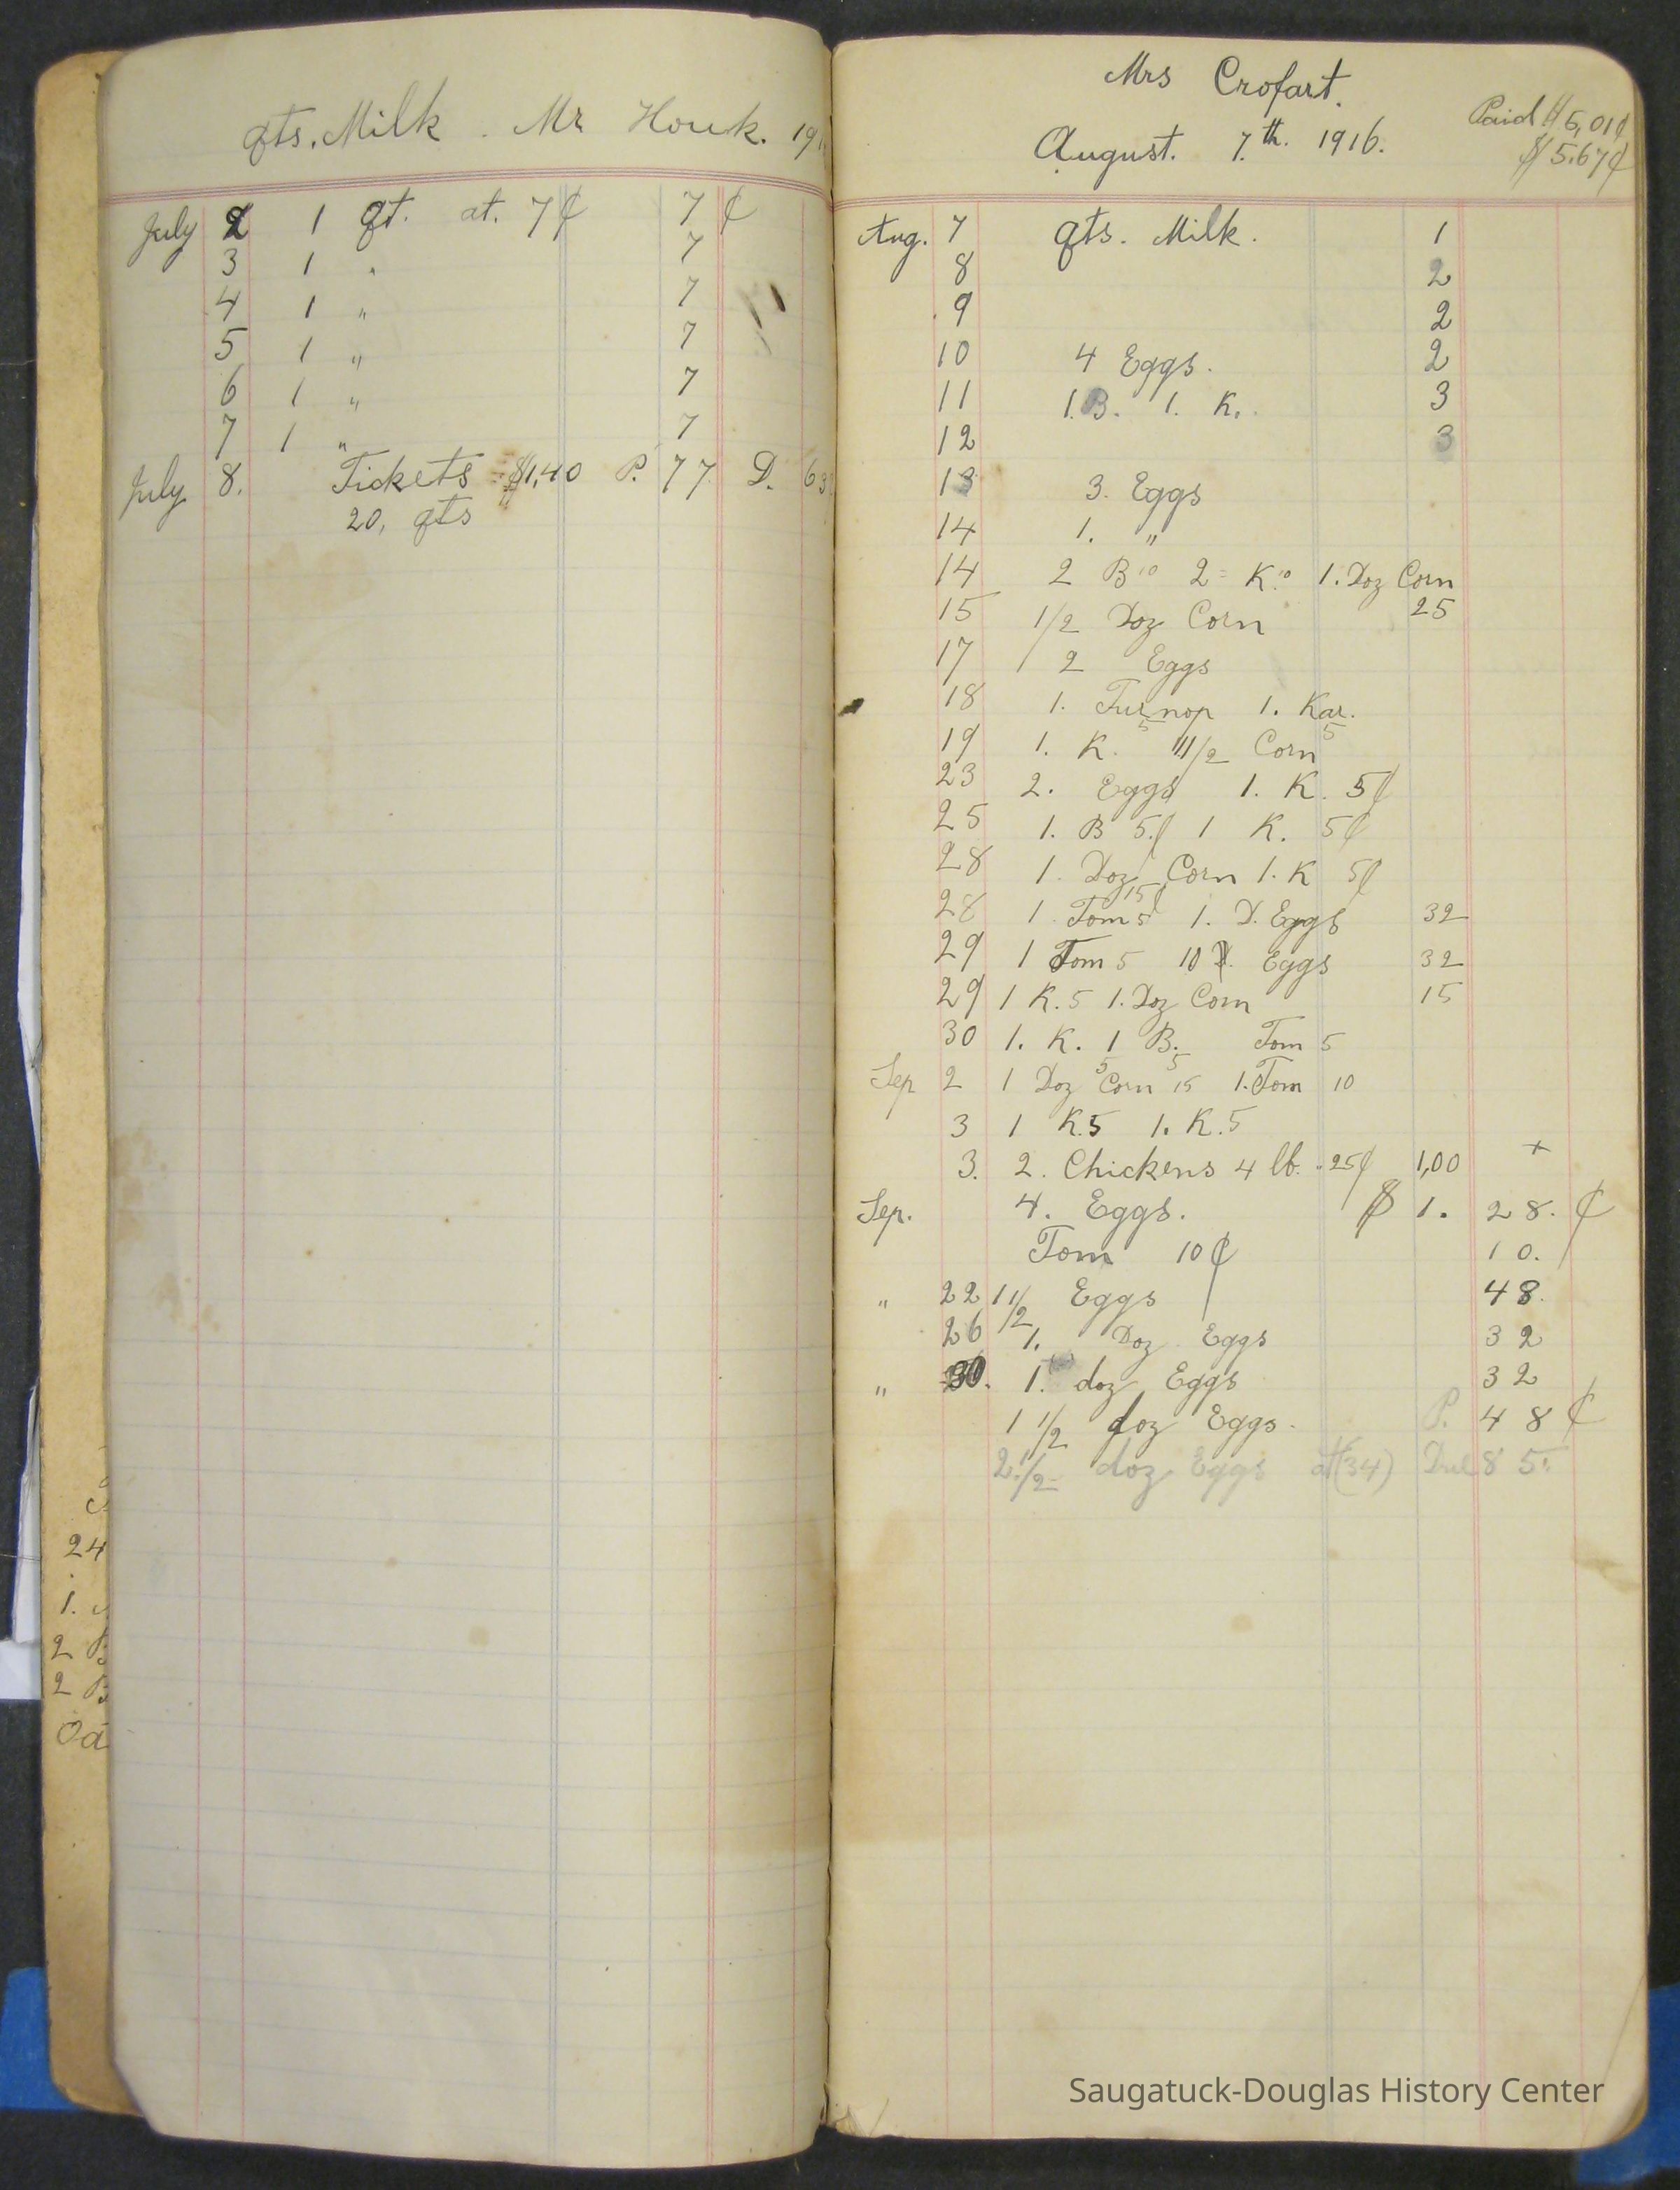 qts. Milk . Mr Houk. 191
July 2 1 qt. at. 7¢ 7¢
3 1 " 7
4 1 " 7
5 1 " 7
6 1 " 7
7 1 " 7
July 8. Tickets $1,40 P. 77 D. 63
20, qts
24
1.
2 B
2 B
Mrs Crofart.
Paid $5,01¢
August. 7.th. 1916.
$5.67¢
Aug. 7 qts. Milk. 1
8 2
9 2
10 4 Eggs. 2
11 1.B. 1. K. 3
12 3
13 3. Eggs
14 1. "
14 2 B 10 2 = K. 10 1. Doz Corn
15 1/2 Doz Corn 25
17 2 Eggs
18 1. Turnop 1. Kar.
5 5
19 1. K. 1/2 Corn
23 2. Eggs 1. K. 5¢
25 1. B 5.¢ 1 K. 5¢
28 1. Doz Corn 1. K 5¢
15¢
28 1 Tom 5 1. D. Eggs 32
29 1 Tom 5 10 Eggs 32
29 1 K. 5 1. Doz Corn 15
30 1. K. 1 B. Tom 5
5 5
Sep 2 1 Doz Corn 15 1. Tom 10
3 1 K.5 1. K.5
3. 2. Chickens 4 lb. 25¢ 1,00 +
Sep. 4. Eggs. $ 1. 28. ¢
Tom 10¢ 10.
" 22 1 1/2 Eggs 48.
26 1. Doz. Eggs 32
" 30. 1. doz Eggs 32
1 1/2 doz Eggs. P. 48 ¢
2 1/2 doz Eggs at (34) Due 85.
Saugatuck-Douglas History Center